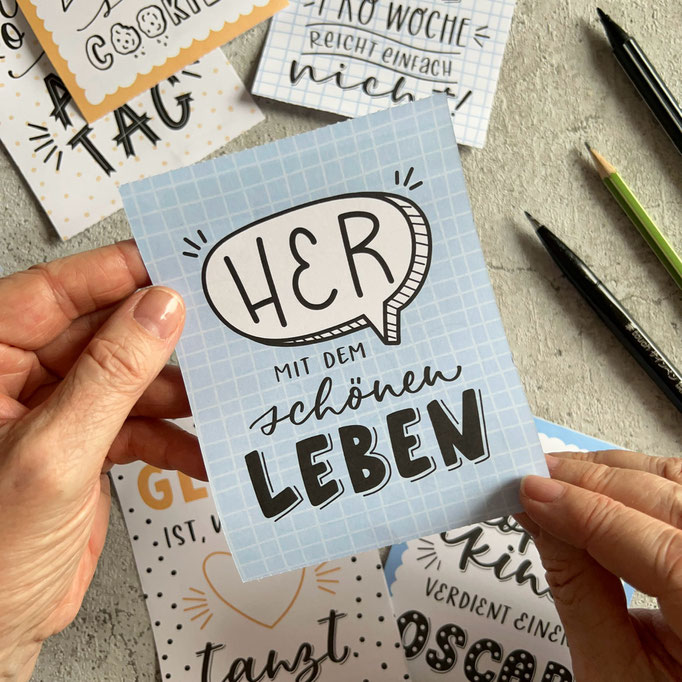 COOKIE
TAG
WOCHE
REICHT EINFACH
nicht!
HER
MIT DEM
schönen
LEBEN
IST,
tanzt.
VERDIENT EINEN
OSCAR